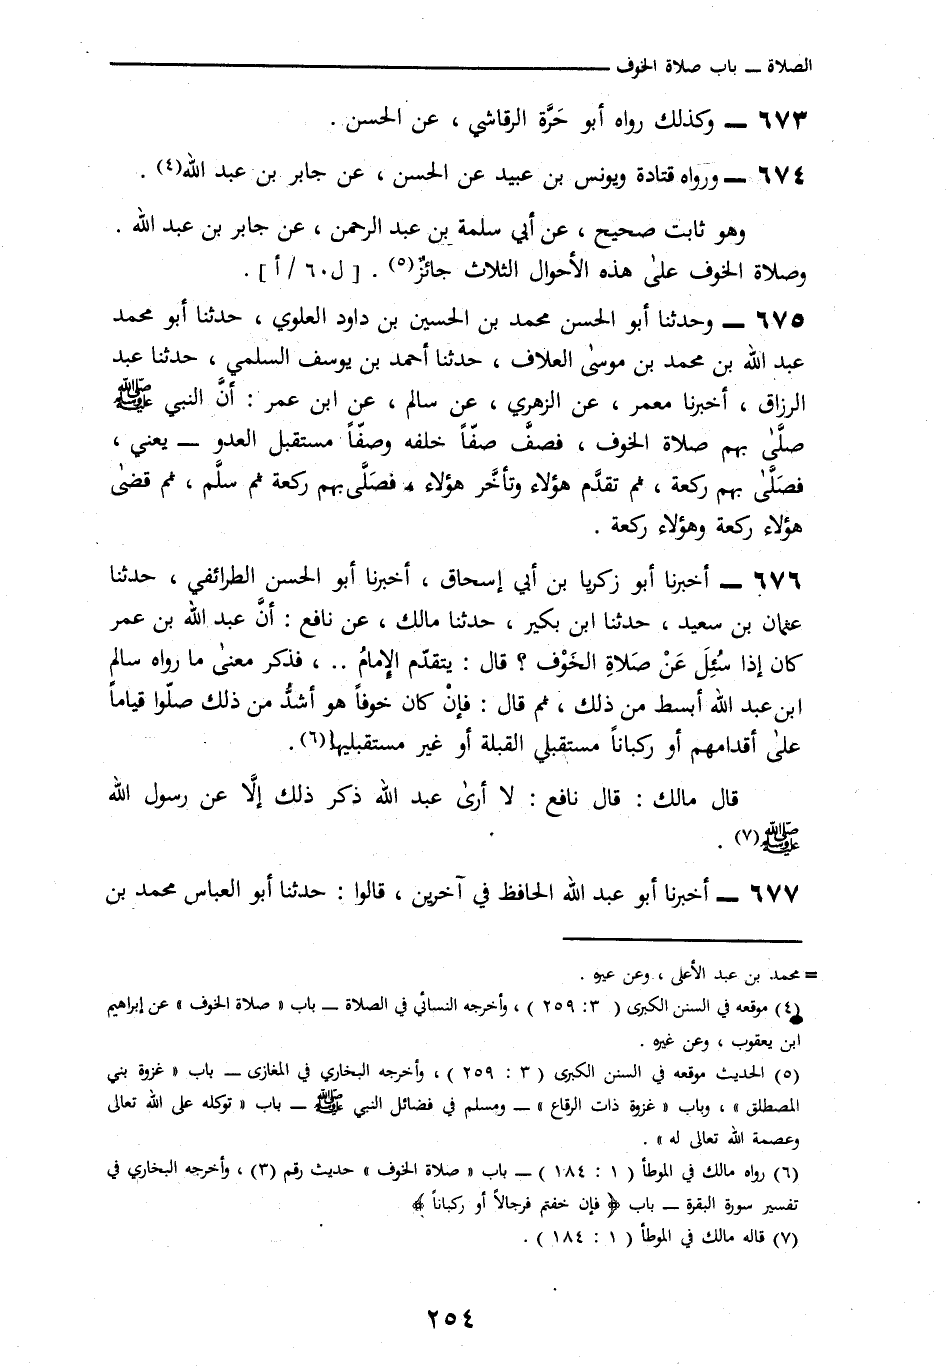 الصلاة ــ باب صلاة الخوف
٦٧٣ ــ وكذلك رواه أبو حَرَّة الرقاشي ، عن الحسن .
٦٧٤ ــ ورواه قتادة ويونس بن عبيد عن الحسن ، عن جابر بن عبد الله(٤) .
وهو ثابت صحيح ، عن أبي سلمة بن عبد الرحمن ، عن جابر بن عبد الله .
وصلاة الخوف علىٰ هذه الأحوال الثلاث جائزٌ(٥) . [ ل٦٠ / أ ] .
٦٧٥ ــ وحدثنا أبو الحسن محمد بن الحسين بن داود العلوي ، حدثنا أبو محمد
عبد الله بن محمد بن موسىٰ العلاف ، حدثنا أحمد بن يوسف السلمي ، حدثنا عبد
الرزاق ، أخبرنا معمر ، عن الزهري ، عن سالم ، عن ابن عمر : أنَّ النبي ﷺ
صلَّىٰ بهم صلاة الخوف ، فصفَّ صفّاً خلفه وصفّاً مستقبل العدو ــ يعني ،
فصَلَّىٰ بهم ركعة ، ثم تقدَّم هؤلاء وتأخَّر هؤلاء ، فصَلَّى بهم ركعة ثم سلَّم ، ثم قضىٰ
هؤلاء ركعة وهؤلاء ركعة .
٦٧٦ ــ أخبرنا أبو زكريا بن أبي إسحاق ، أخبرنا أبو الحسن الطرائفي ، حدثنا
عثمان بن سعيد ، حدثنا ابن بكير ، حدثنا مالك ، عن نافع : أنَّ عبد الله بن عمر
كان إذا سُئِلَ عَنْ صَلَاةِ الخَوْف ؟ قال : يتقدّم الإِمامُ .. ، فذكر معنىٰ ما رواه سالم
ابن عبد الله أبسط من ذلك ، ثم قال : فإنْ كان خوفاً هو أشدُّ من ذلك صلّوا قياماً
علىٰ أقدامهم أو ركباناً مستقبلي القبلة أو غير مستقبليها(٦) .
قال مالك : قال نافع : لا أرىٰ عبد الله ذكر ذلك إلَّا عن رسول الله
ﷺ(٧) .
٦٧٧ ــ أخبرنا أبو عبد الله الحافظ في آخرين ، قالوا : حدثنا أبو العباس محمد بن
= محمد بن عبد الأعلى ، وعن غيره .
(٤) موقعه في السنن الكبرى ( ٣ : ٢٥٩ ) ، وأخرجه النسائي في الصلاة ــ باب « صلاة الخوف » عن إبراهيم
ابن يعقوب ، وعن غيره .
(٥) الحديث موقعه في السنن الكبرى ( ٣ : ٢٥٩ ) ، وأخرجه البخاري في المغازى ــ باب « غزوة بني
المصطلق » ، وباب « غزوة ذات الرقاع » ــ ومسلم في فضائل النبي ﷺ ــ باب « توكله على الله تعالى
وعصمة الله تعالى له » .
(٦) رواه مالك في الموطأ ( ١ : ١٨٤ ) ــ باب « صلاة الخوف » حديث رقم (٣) ، وأخرجه البخاري في
تفسير سورة البقرة ــ باب ﴿ فإن خفتم فرجالاً أو ركباناً ﴾
(٧) قاله مالك في الموطأ ( ١ : ١٨٤ ) .
٢٥٤